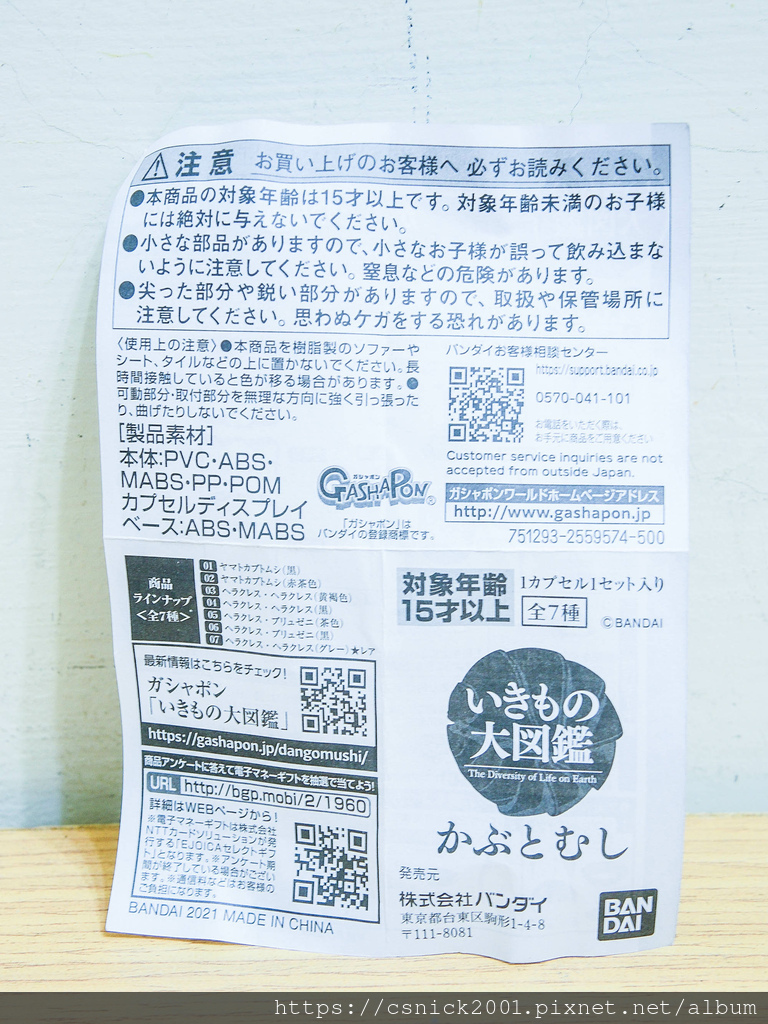 注意 お買い上げのお客様へ 必ずお読みください。
●本商品の対象年齢は15才以上です。対象年齢未満のお子様
には絶対に与えないでください。
●小さな部品がありますので、小さなお子様が誤って飲み込まな
いように注意してください。窒息などの危険があります。
●尖った部分や鋭い部分がありますので、取扱や保管場所に
注意してください。思わぬケガをする恐れがあります。
〈使用上の注意〉●本商品を樹脂製のソファーや
シート、タイルなどの上に置かないでください。長
時間接触していると色が移る場合があります。●
可動部分・取付部分を無理な方向に強く引っ張った
り、曲げたりしないでください。
[製品素材]
本体:PVC・ABS・
MABS・PP・POM
カプセルディスプレイ
ベース:ABS・MABS
バンダイお客様相談センター
https://support.bandai.co.jp
0570-041-101
お電話をいただく際は、
お手元に商品をご用意ください
Customer service inquiries are not
accepted from outside Japan.
ガシャポン
GASHAPON®
「ガシャポン」は
バンダイの登録商標です。
ガシャポンワールドホームページアドレス
http://www.gashapon.jp
751293-2559574-500
商品
ラインナップ
<全7種>
01 ヤマトカブトムシ(黒)
02 ヤマトカブトムシ(赤茶色)
03 ヘラクレス・ヘラクレス(黄褐色)
04 ヘラクレス・ヘラクレス(黒)
05 ヘラクレス・ブリュゼニ(茶色)
06 ヘラクレス・ブリュゼニ(黒)
07 ヘラクレス・ヘラクレス(グレー)★レア
最新情報はこちらをチェック!
ガシャポン
「いきもの大図鑑」
https://gashapon.jp/dangomushi/
商品アンケートに答えて電子マネーギフトを抽選で当てよう!
URL http://bgp.mobi/2/1960
詳細はWEBページから!
※電子マネーギフトは株式会社
NTTカードソリューションが発
行する「EJOICAセレクトギフ
ト」となります。※アンケート期
間が終了している場合がござい
ます。※通信料などはお客様の
ご負担になります。
BANDAI 2021 MADE IN CHINA
対象年齢
15才以上
1カプセル1セット入り
全7種
©BANDAI
いきもの
大図鑑
The Diversity of Life on Earth
かぶとむし
発売元
株式会社バンダイ
東京都台東区駒形1-4-8
〒111-8081
BAN
DAI
https://csnick2001.pixnet.net/album